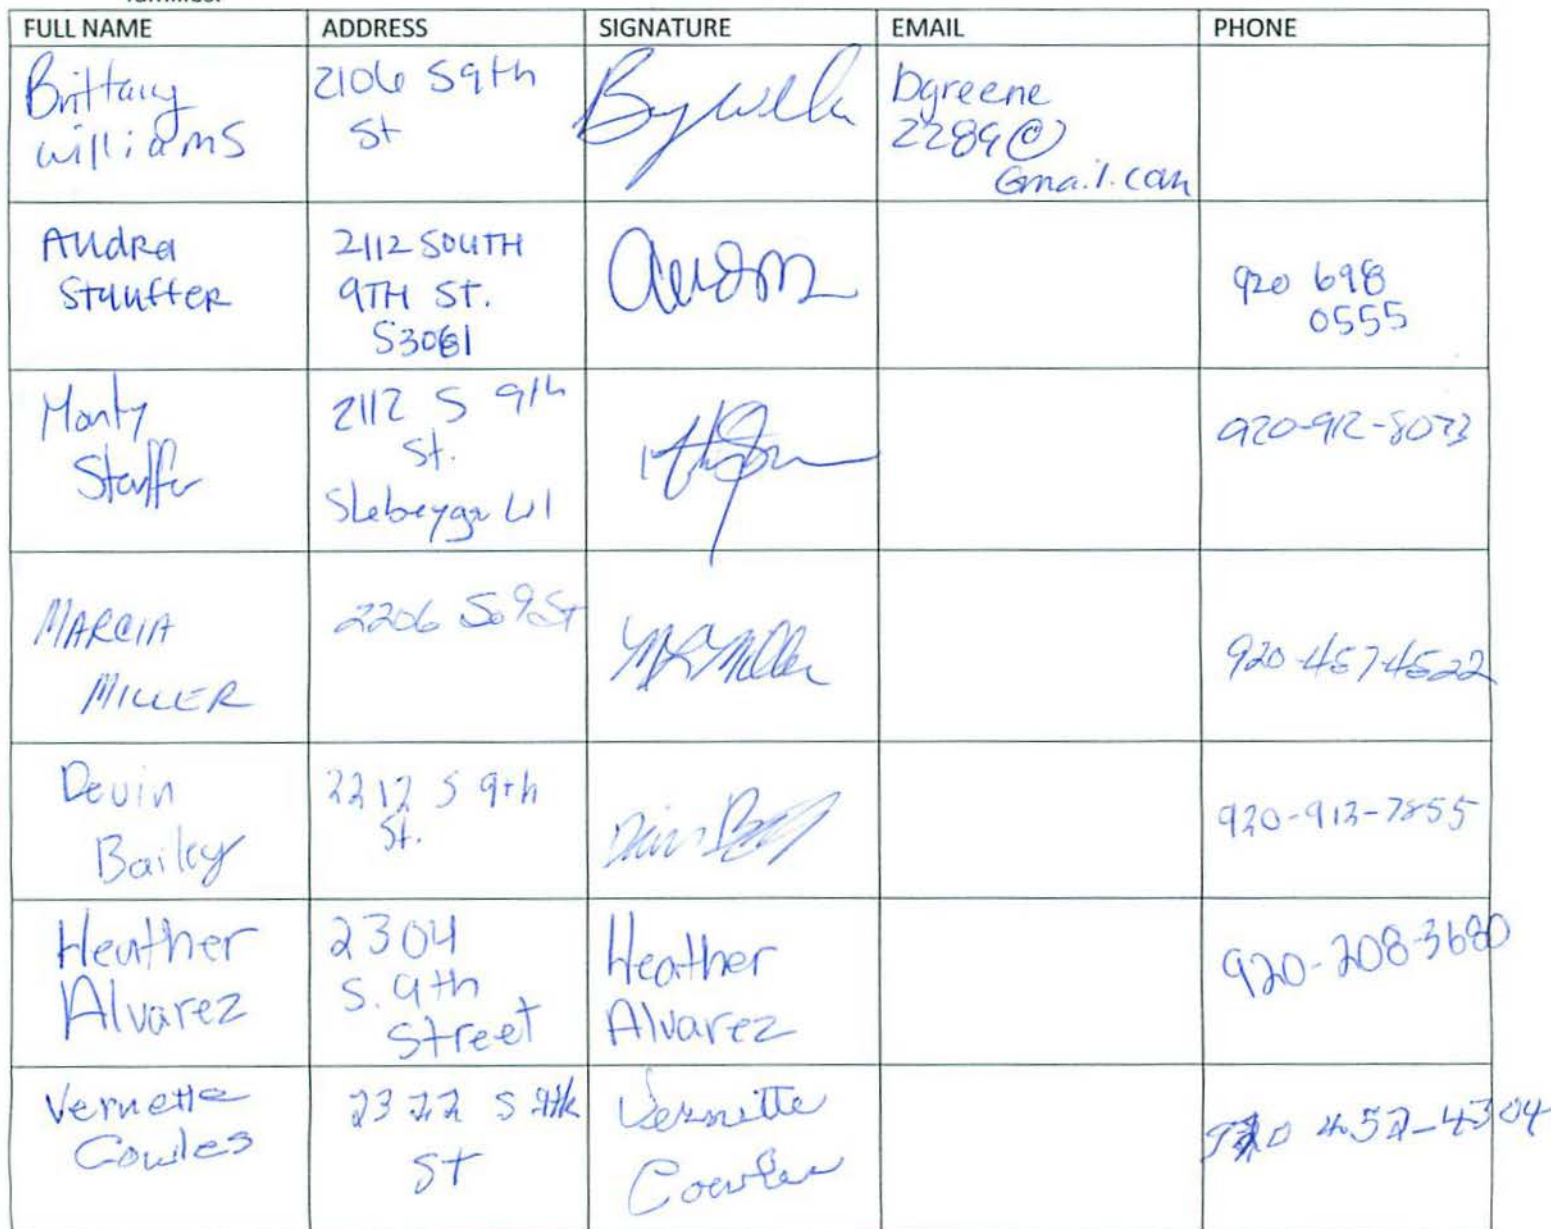 families.
FULL NAME ADDRESS SIGNATURE EMAIL PHONE
Brittany
Williams
2106 S 9th
St
Dgreene
2289@
Gmail.com
Audra
Stauffer
2112 SOUTH
9TH ST.
53081
920 698
0555
Monty
Stauffer
2112 S 9th
St.
Sheboygan WI
920-912-8073
MARCIA
MILLER
2206 So 9 St
MK Miller
920-457-4522
Devin
Bailey
2212 S 9th
St.
920-912-7855
Heather
Alvarez
2304
S. 9th
Street
Heather
Alvarez
920-208-3680
Vernette
Cowles
2322 S 9th
St
Vernette
Cowles
920 452-4304